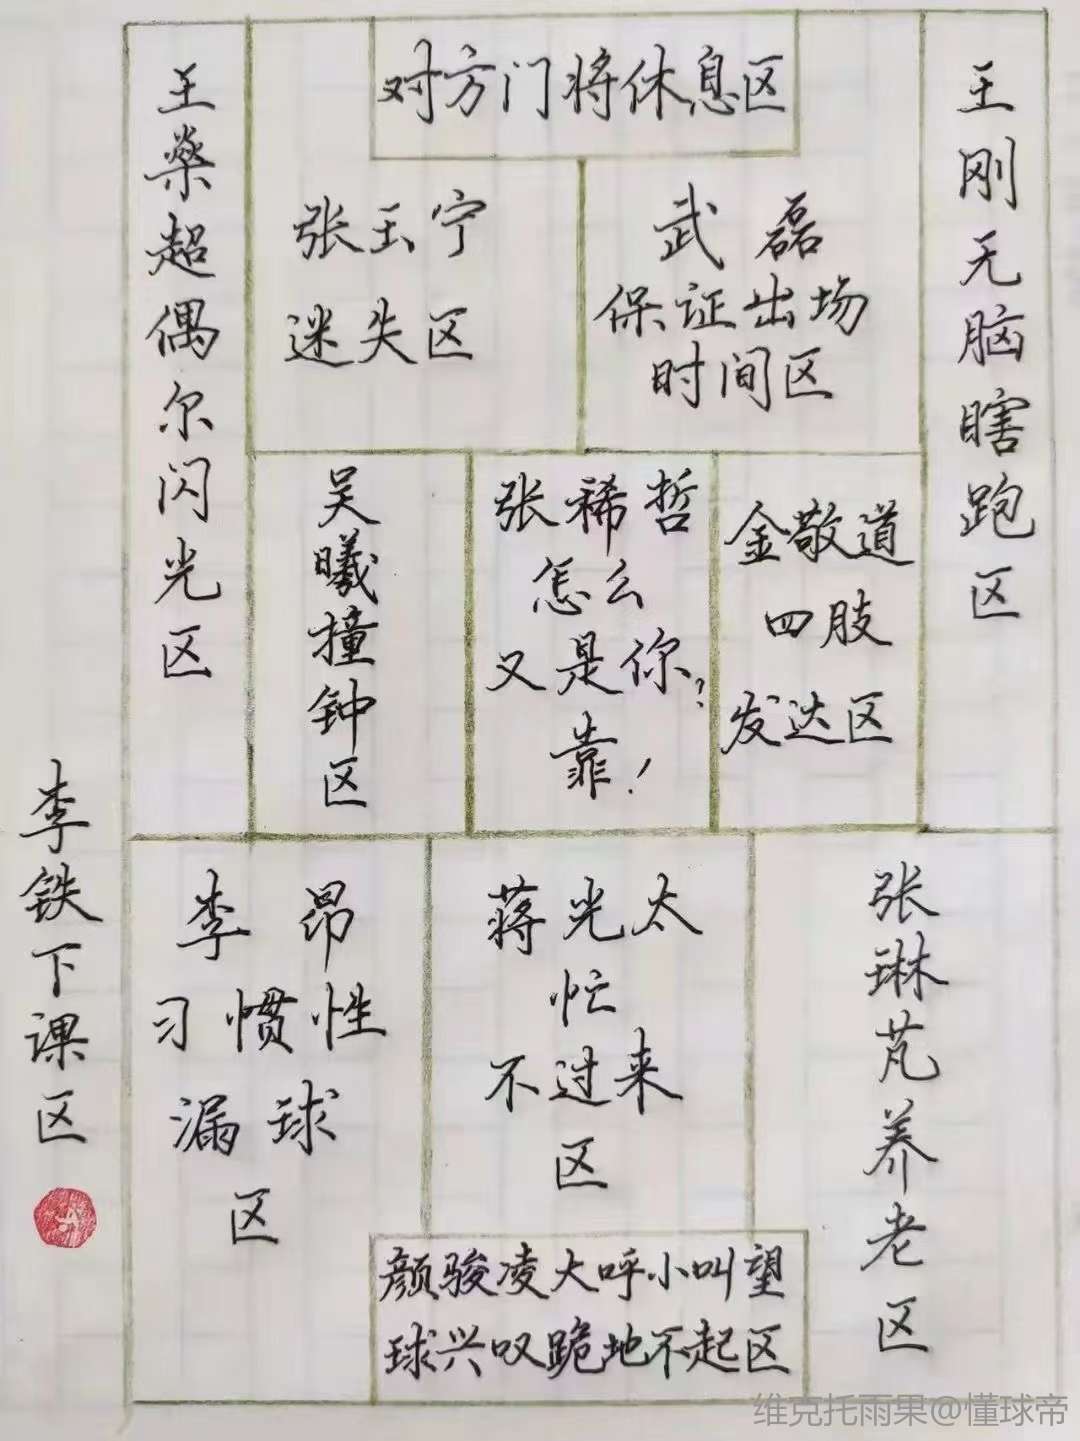 对方门将休息区
王燊超偶尔闪光区
张玉宁
迷失区
武磊
保证出场
时间区
王刚无脑瞎跑区
吴曦撞钟区
张稀哲
怎么
又是你?
靠!
金敬道
四肢
发达区
李铁下课区
李昂
习惯性
漏球
区
蒋光太
忙
不过来
区
张琳芃养老区
颜骏凌大呼小叫望
球兴叹跪地不起区
维克托雨果@懂球帝